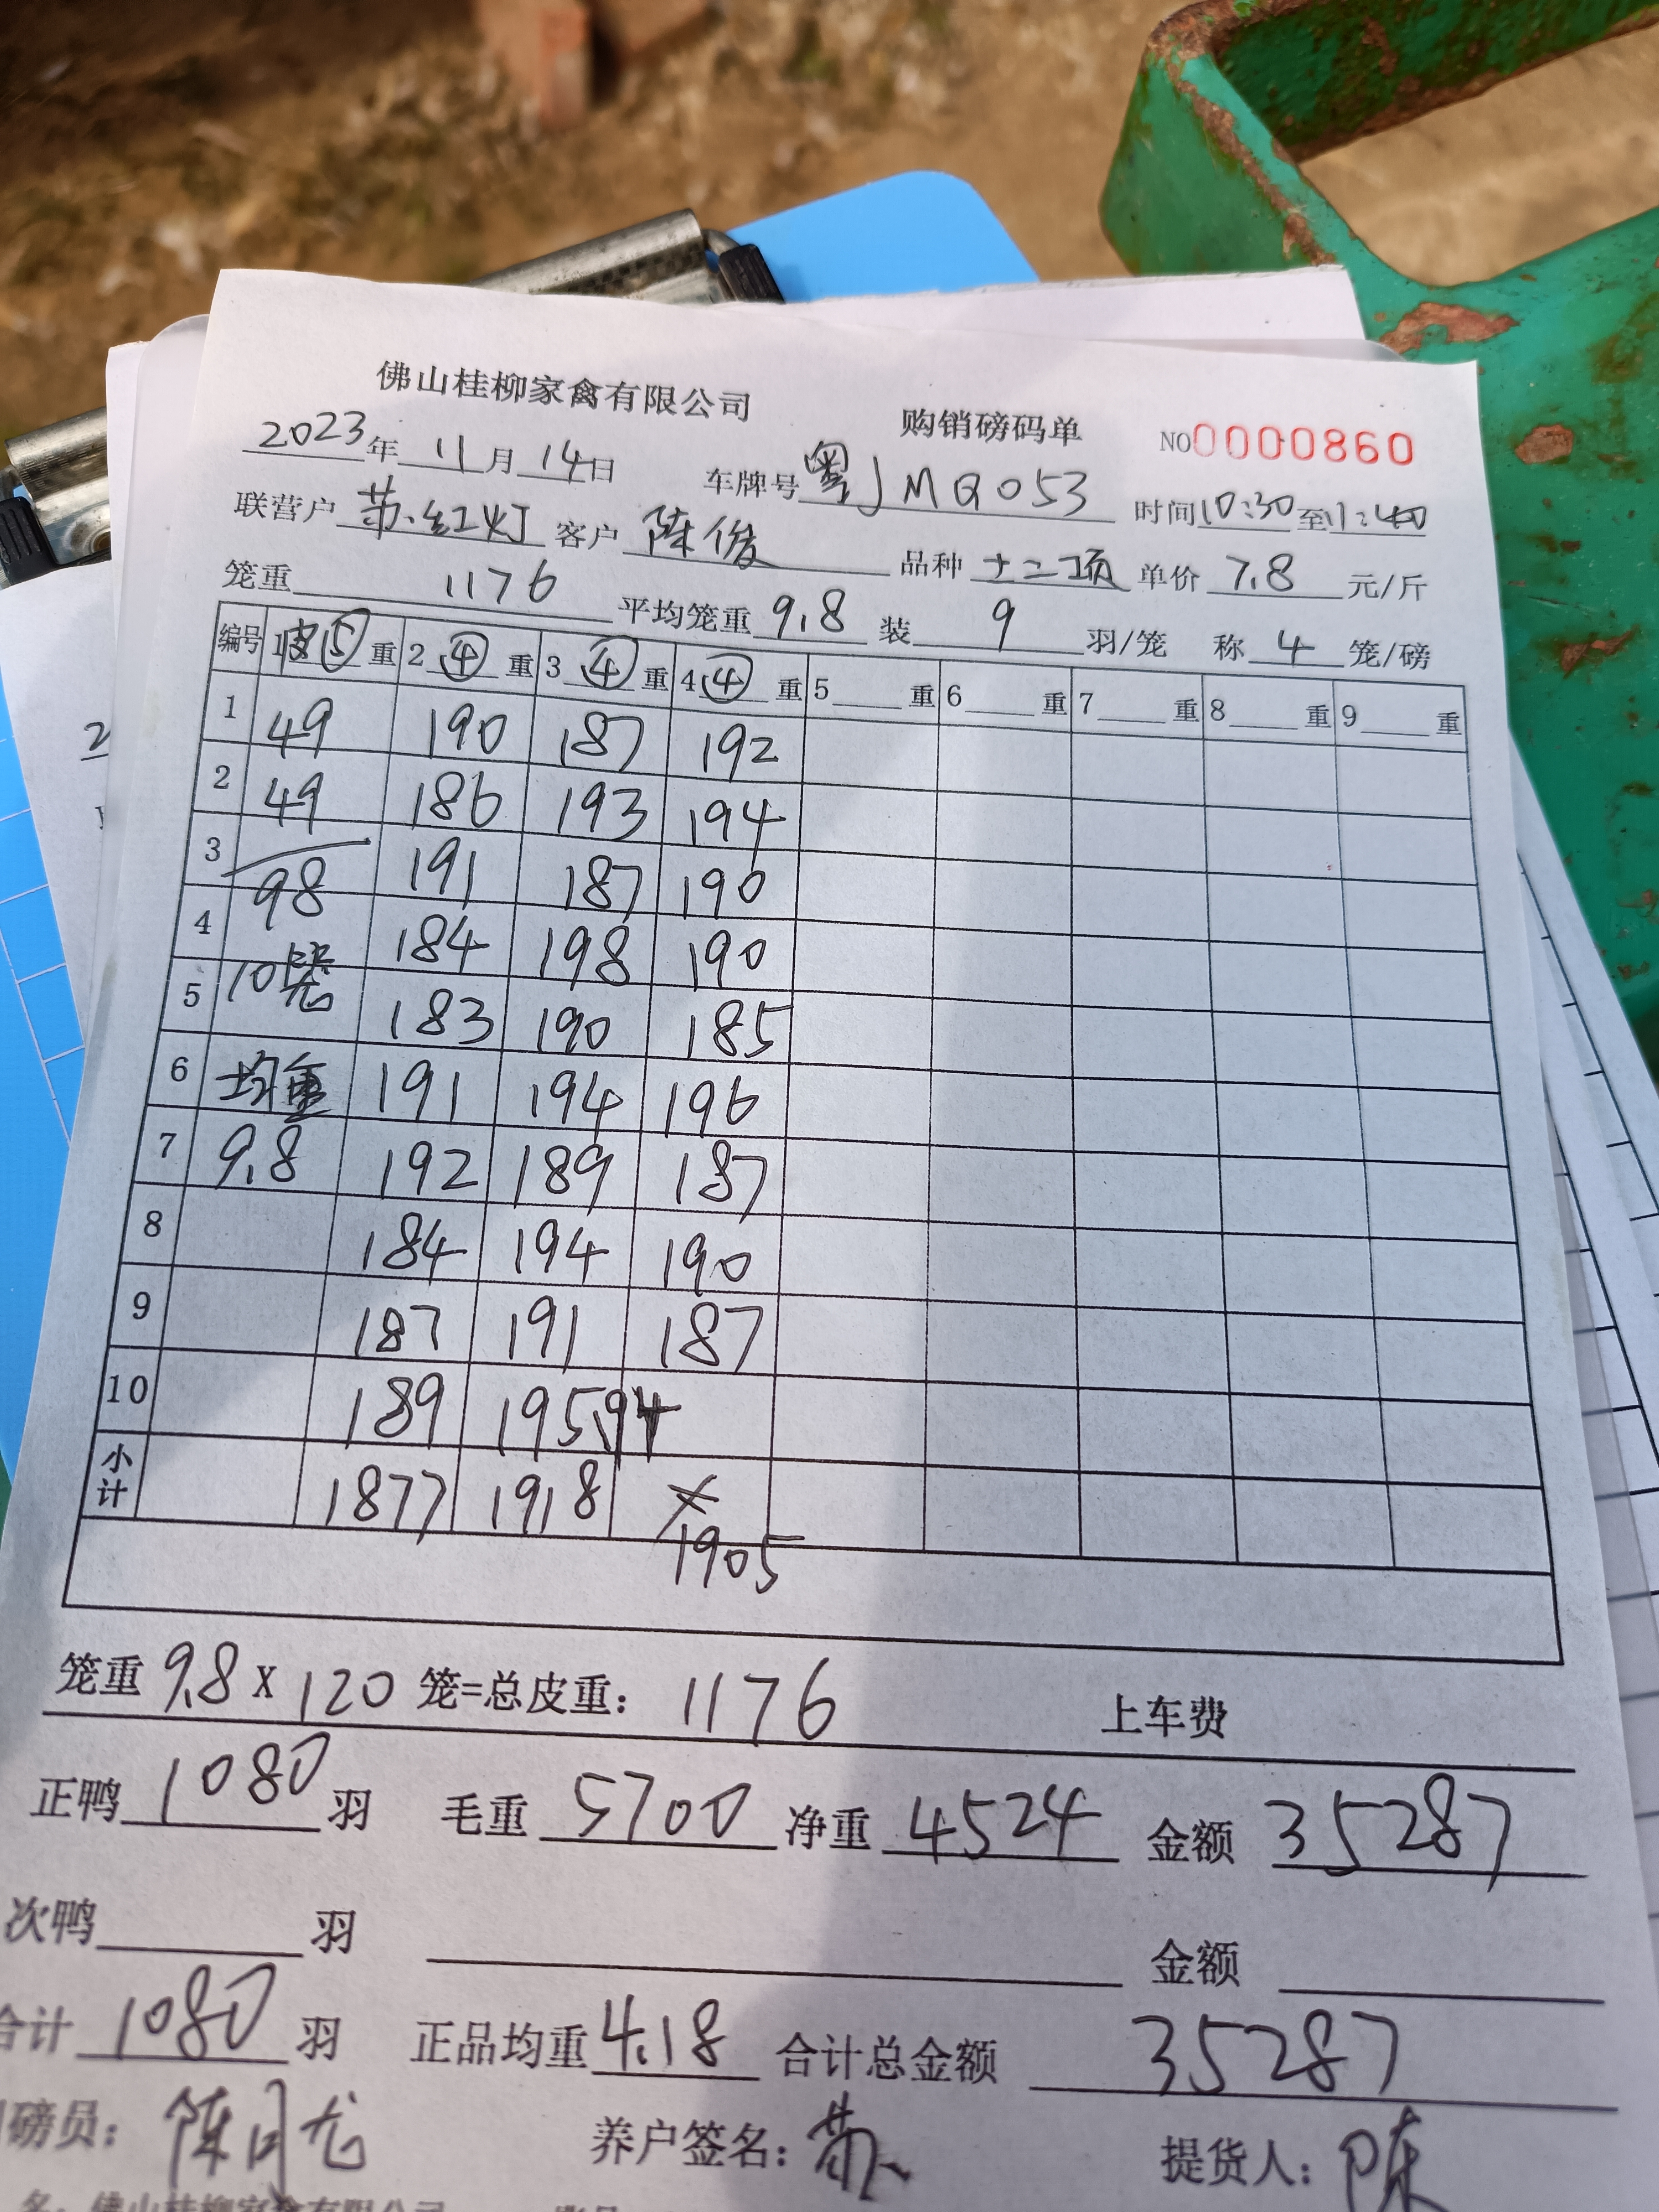 佛山桂柳家禽有限公司 购销磅码单 NO0000860
2023年11月14日 车牌号粤JMQ053 时间10:30至11:40
联营户苏红灯 客户陈俊 品种十二项 单价7.8元/斤
笼重1176 平均笼重9.8装9羽/笼 称4笼/磅
编号 1皮⑤重 2④重 3④重 4④重 5重 6重 7重 8重 9重
1 49 190 187 192
2 49 186 193 194
3 98 191 187 190
4 184 198 190
5 10笼 183 190 185
6 均重 191 194 196
7 9.8 192 189 187
8 184 194 190
9 187 191 187
10 189 195 194
小计 1877 1918 1905
笼重9.8X120笼=总皮重:1176 上车费
正鸭1080羽 毛重5700净重4524 金额35287
次鸭 羽 金额
合计1080羽 正品均重4.18 合计总金额35287
磅员: 养户签名:苏 提货人:陈
名:佛山桂柳家禽有限公司